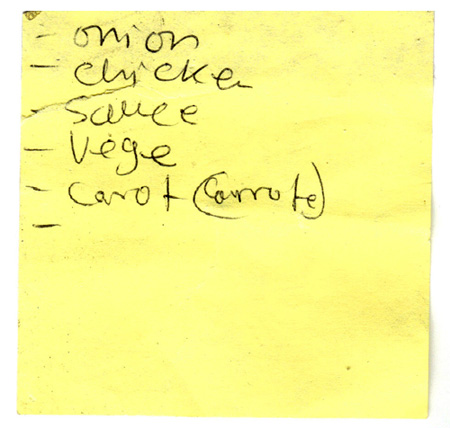 - onion
- chicken
- Sauce
- Vege
- Carot (Carrote)
-